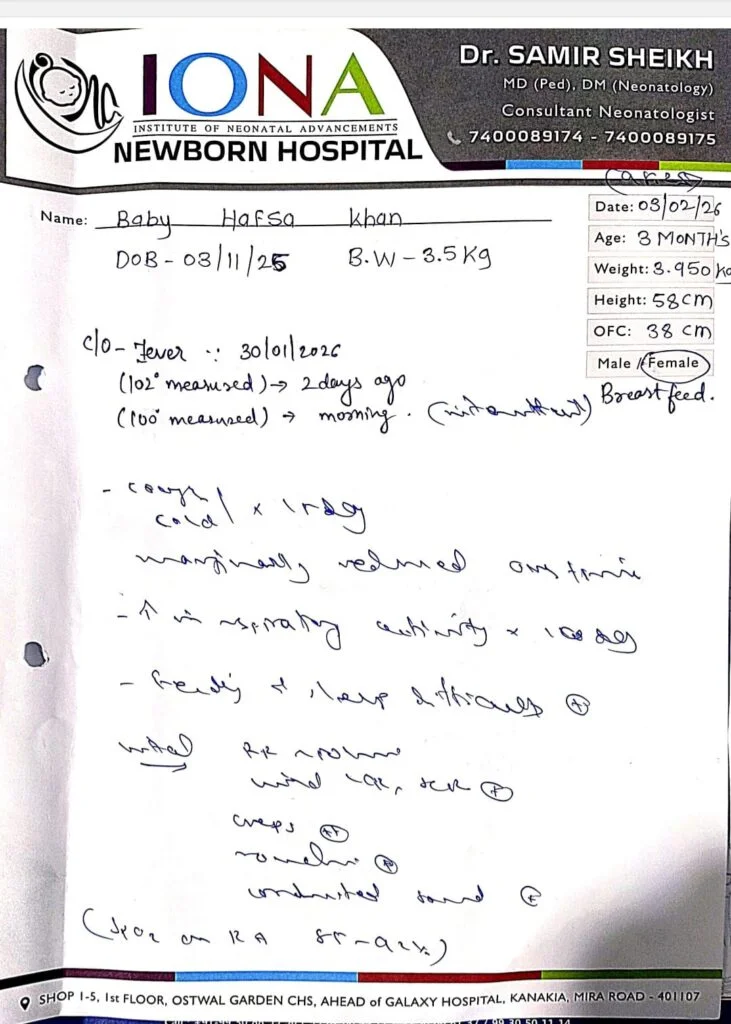 Ona
IONA
INSTITUTE OF NEONATAL ADVANCEMENTS
NEWBORN HOSPITAL
Dr. SAMIR SHEIKH
MD (Ped), DM (Neonatology)
Consultant Neonatologist
7400089174 - 7400089175
Name: Baby Hafsa Khan
DOB - 03/11/25 B.W - 3.5 Kg
Date: 03/02/26
Age: 3 MONTH'S
Weight: 3.950 kg
Height: 58 cm
OFC: 38 cm
Male / Female
Breast feed.
c/o - Fever ∵ 30/01/2026
(102° measured) → 2 days ago
(100° measured) → morning. (intermittent)
- cough
cold x
marginally reduced
- ↑ in respiratory activity x
- feeding + sleep difficulty +
RR
mild , SCR +
creps ++
ronchi +
conducted sound +
(SpO2 on RA
SHOP 1-5, 1st FLOOR, OSTWAL GARDEN CHS, AHEAD of GALAXY HOSPITAL, KANAKIA, MIRA ROAD - 401107